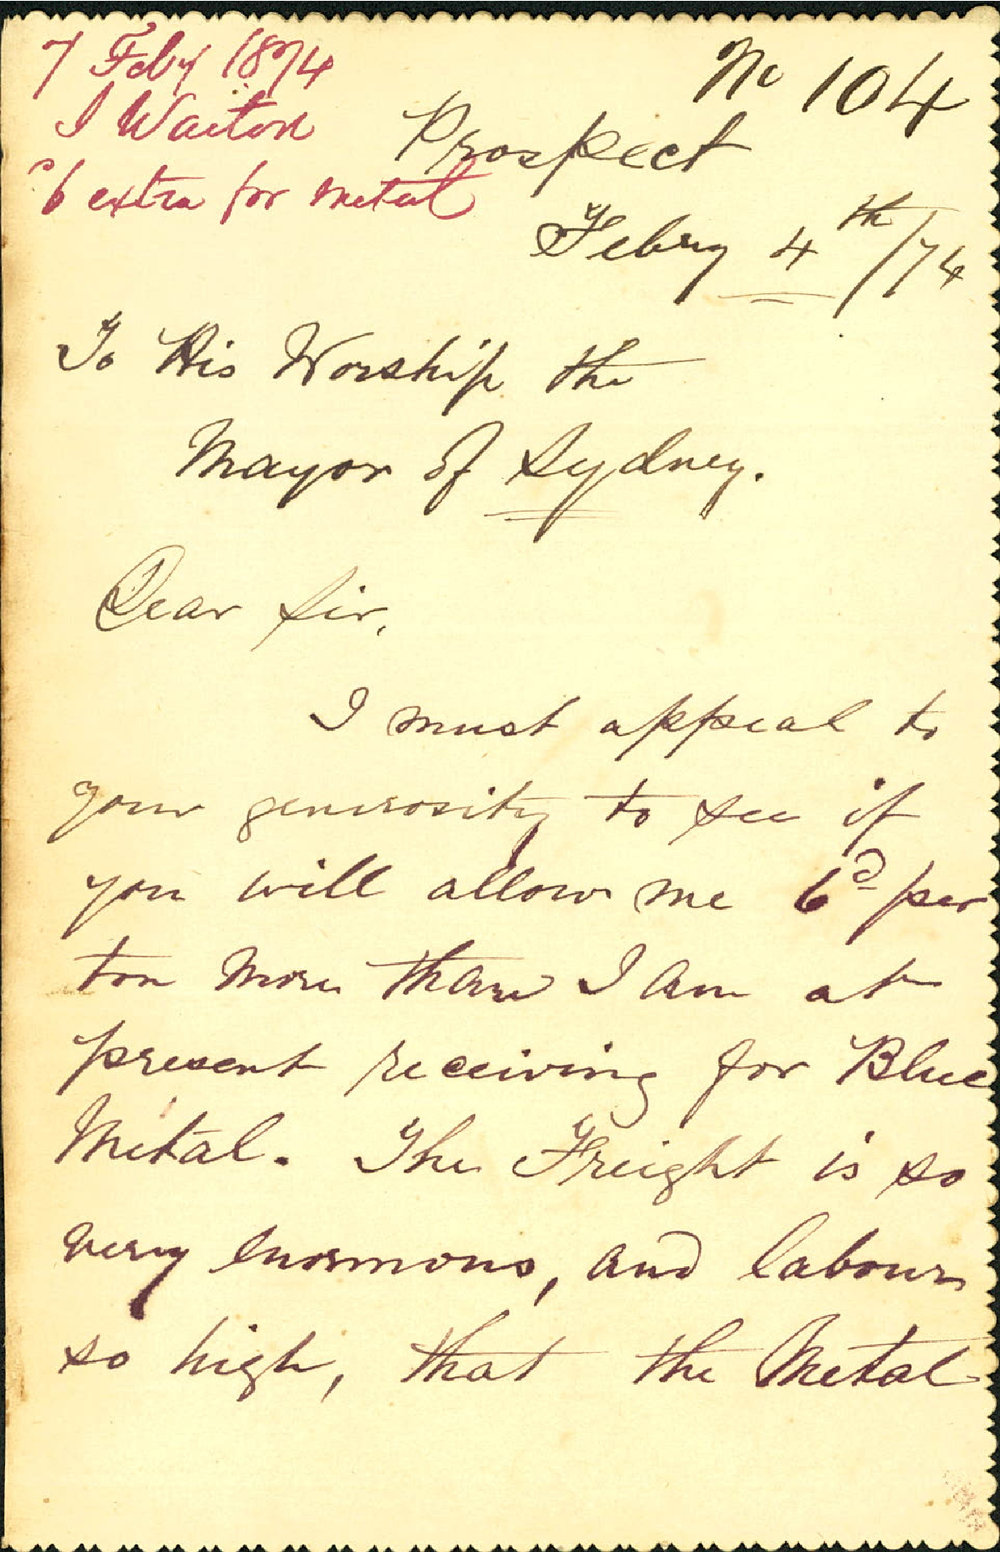 7 Feby 1874
J Waiton
6 extra for metal
No 104
Prospect
Febry 4th/74
To His Worship the
Mayor of Sydney.
Dear Sir,
I must appeal to
your generosity to see if
you will allow me 6d per
ton more than I am at
present receiving for Blue
Metal. The Freight is so
very enormous, and labour
so high, that the Metal